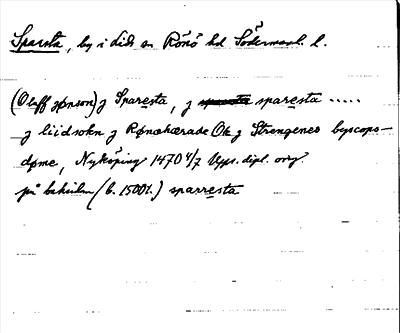 Sparsta, by i Lids sn Rönö hd Södermanl. l.
(Oleff jønson) j Sparesta, j sparesta .....
j liidsokn j Rønohærade Ok j Strengenes byscops-
døme, Nyköping 1470 4/7 Upps. dipl. orig.
på baksidan (b. 1500t.) sparresta